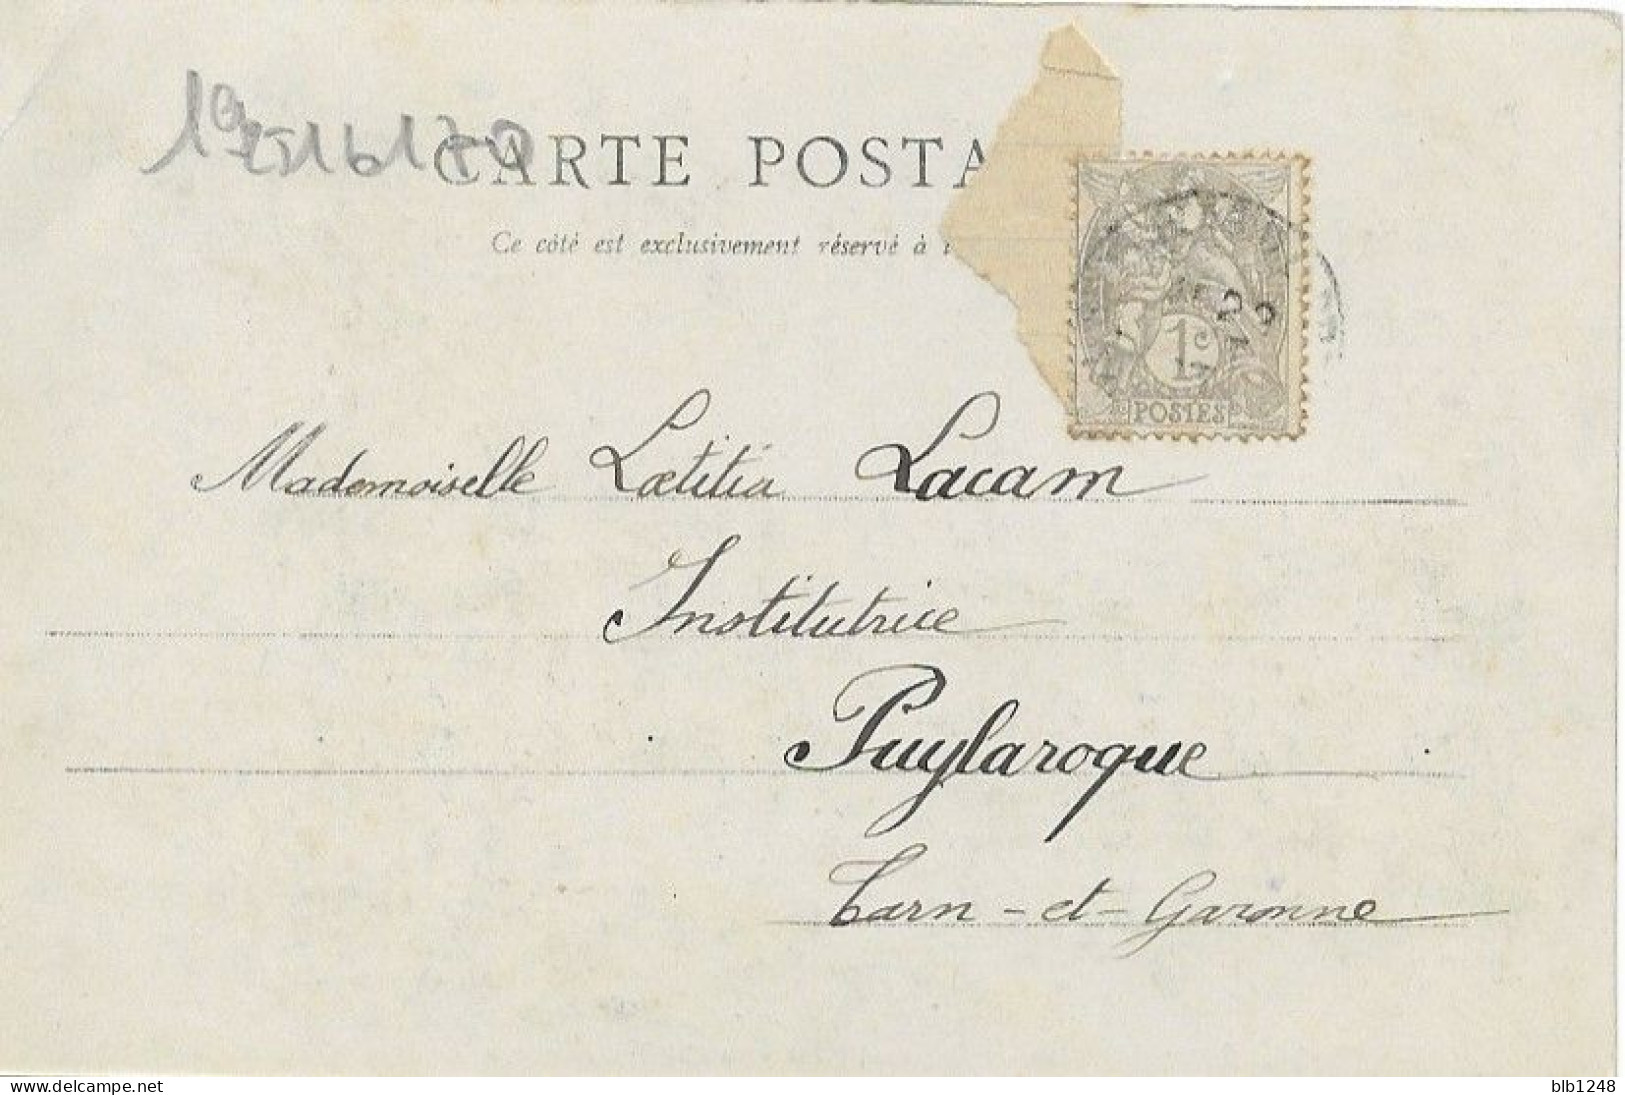 CARTE POSTA
Ce côté est exclusivement réservé à
1c
POSTES
Mademoiselle Lætitia Lacam
Institutrice
Puylaroque
Tarn-et-Garonne
www.delcampe.net
blb1248